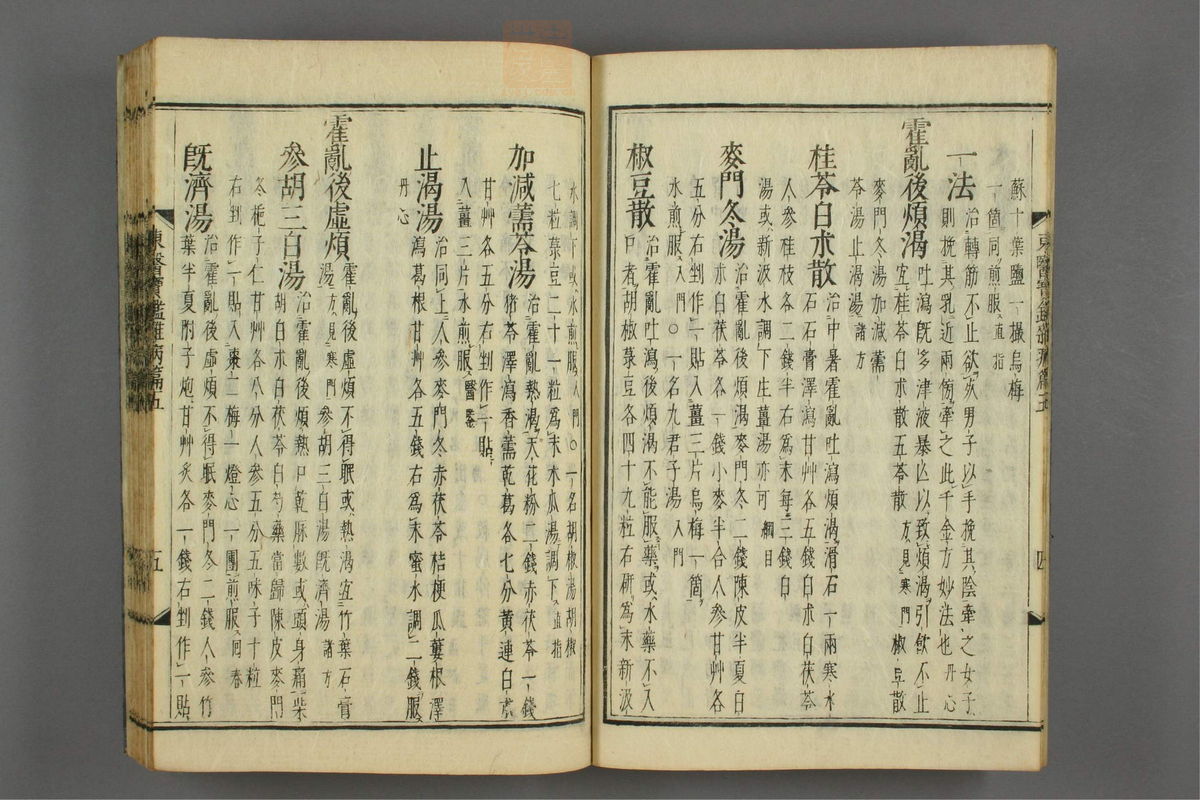 蘇十葉鹽一撮烏梅
一箇同煎服直指
一法治轉筋不止欲𣦸男子以手挽其陰牽之女子
則挽其乳近兩傍牽之此千金方妙法也丹心
霍亂後煩渴吐瀉旣多津液暴亾以致煩渴引飮不止
宜桂苓白朮散五苓散方見寒門椒豆散
麥門冬湯加減薷
苓湯止渴湯諸方
桂苓白朮散治中暑霍亂吐瀉煩渴滑石一兩寒水
石石膏澤瀉甘艸各五錢白朮白茯苓
人參桂枝各二錢半右爲末每三錢白
湯或新汲水調下生薑湯亦可綱目
麥門冬湯治霍亂後煩渴麥門冬二錢陳皮半夏白
朮白茯苓各一錢小麥半合人參甘艸各
五分右剉作一貼入薑三片烏梅一箇
水煎服入門○一名九君子湯入門
椒豆散治霍亂吐瀉後煩渴不能服藥或水藥不入
口者胡椒菉豆各四十九粒右研爲末新汲
四
水調下或水煎服入門○一名胡椒湯胡椒
七粒菉豆二十一粒爲末木瓜湯調下直指
加減薷苓湯治霍亂熱渴天花粉二錢赤茯苓一錢
猪苓澤瀉香薷乾葛各七分黃連白朮
甘艸各五分右剉作一貼
入薑三片水煎服醫鑑
止渴湯治同上人參麥門冬赤茯苓桔梗瓜蔞根澤
瀉葛根甘艸各五錢右爲末蜜水調二錢服
丹心
霍亂後虛煩霍亂後虛煩不得眠或熱渴宜竹葉石膏
湯方見寒門參胡三白湯旣濟湯諸方
參胡三白湯治霍亂後煩熱口乾脉數或頭身痛柴
胡白朮白茯苓白芍藥當歸陳皮麥門
冬梔子仁甘艸各八分人參五分五味子十粒
右剉作一貼入棗二梅一燈心一團煎服回春
旣濟湯治霍亂後虛煩不得眠麥門冬二錢人參竹
葉半夏附子炮甘艸炙各一錢右剉作一貼
東醫寶鑑雜病篇五
五